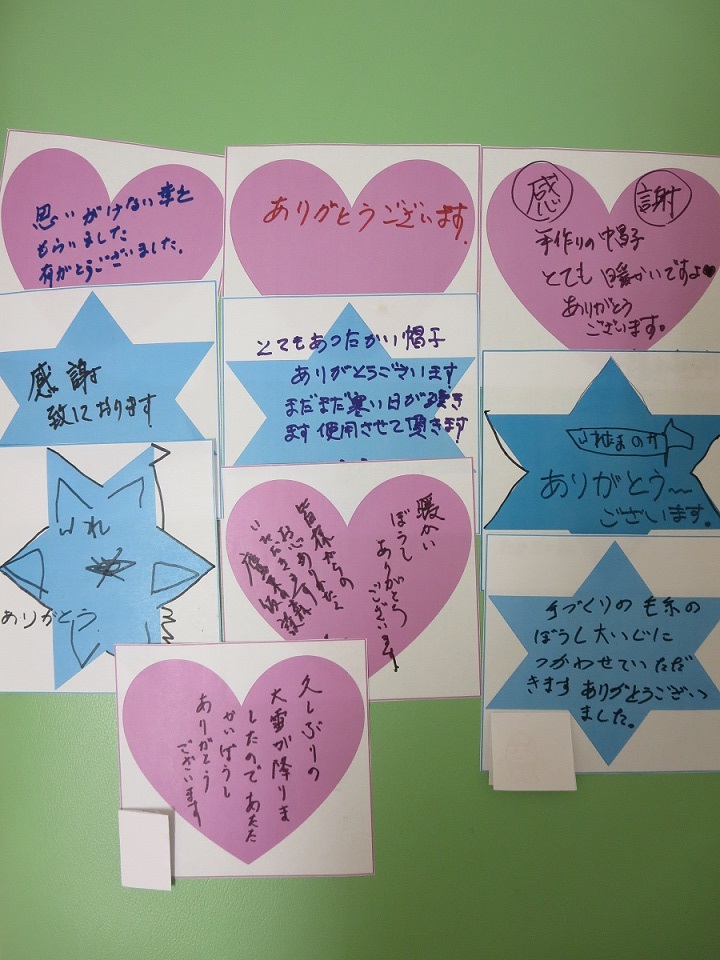 思いがけない幸と
もらいました
有がとうございました。
ありがとうございます。
感謝
手作りの帽子
とても暖かいですよ♥
ありがとう
ございます。
感謝
致しております
とてもあったかい帽子
ありがとうございます
まだまだ寒い日が続き
ます使用させて頂きます
ありがとう〜
ございます。
いれ
ありがとう
暖かい
ぼうし
ありがとう
ございます。
皆様からの
手づくりの毛糸の
ぼうし大いじに
つかわせていただ
きますありがとうござい
ました。
久しぶりの
大雪が降りま
したのであたた
かいぼうし
ありがとう
ございます